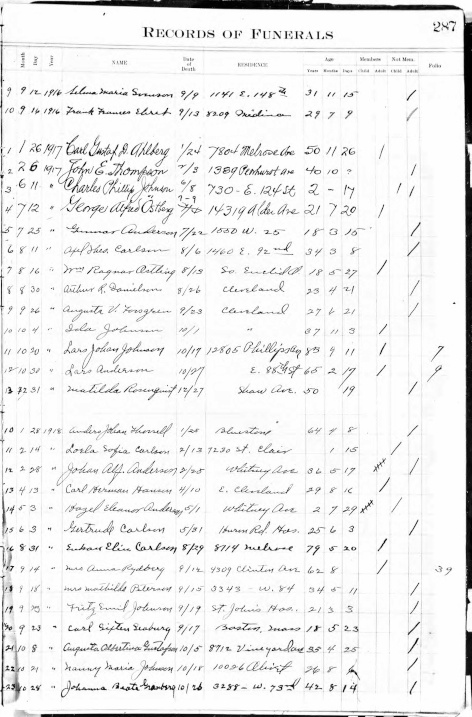 287
RECORDS OF FUNERALS
Month Day Year NAME Date of Death RESIDENCE Age Years Months Days Members Child Adult Not Mem. Child Adult Folio
9 9 12 1916 Selma Maria 9/9 1141 E. 148th 31 11 15 /
10 9 16 1916 Frank Frames 9/13 8209 Medina 29 7 9
1 1 26 1917 Carl Gustaf D. Ahlberg 1/24 7804 Melrose Ave 50 11 26 /
2 2 6 1917 John E. Thompson 2/3 1389 Penhurst Ave 40 10 ? /
3 6 11 " Charles Phillip Johnson 6/8 730 - E. 124 St. 2 - 17 /
4 7 12 " George Alfred Ostberg 7-9 14319 Alder Ave 21 7 20 /
5 7 25 " Gunnar Anderson 7/22 1550 W. 25 18 3 15 /
6 8 11 " Axel Theo. Carlson 8/6 1460 E. 92nd 34 3 8 /
7 8 16 " Wm Ragnar 8/13 So. Euclid 18 5 27 /
8 8 30 " Arthur R. Danielson 8/26 Cleveland 23 4 21 /
9 9 26 " Augusta V. Forsgren 9/23 Cleveland 27 6 21 /
10 10 4 " Johnson 10/1 " 37 11 3 /
11 10 20 " Lars Johan Johnson 10/17 12805 Phillips 83 4 11 / 7
12 10 30 " Lars Anderson 10/27 E. 88th St 65 2 17 / 9
13 12 31 " Matilda Rosenquist 12/27 Shaw Ave. 50 19 /
10 1 28 1918 Anders Johan Thorell 1/28 Bluestone 64 4 8 /
11 2 14 " Sofia Carlson 2/13 7230 St. Clair 1 15 /
12 2 28 " Johan Alf. Anderson 2/25 Whitney Ave 36 5 17 /
13 4 13 " Carl Herman Hanson 4/10 E. Cleveland 29 8 16 /
14 5 3 " Hazel Eleanor Anderson 5/1 Whitney Ave 2 7 29 /
15 6 3 " Gertrude Carlson 5/31 Huron Rd. Hos. 25 6 3 /
16 8 31 " Elin Carlson 8/29 8714 Melrose 79 5 20 /
17 9 14 " Mrs Anna Rydberg 9/12 4309 Clinton Ave 62 8 / 39
18 9 18 " Mrs Mathilda Peterson 9/15 3343 - W. 84 34 5 11 /
19 9 23 " Fritz Emil Johnson 9/19 St. John's Hos. 21 3 3 /
20 9 23 " Carl Sixten 9/17 Boston, Mass 18 5 23 /
21 10 8 " Augusta Albertina Gustafson 10/5 8712 Vineyard Ave 35 4 25 /
22 10 21 " Nanny Maria Johnson 10/18 10026 St 26 8 /
23 10 28 " Johanna Beata 10/26 3288 - W. 73rd 42 8 14 /